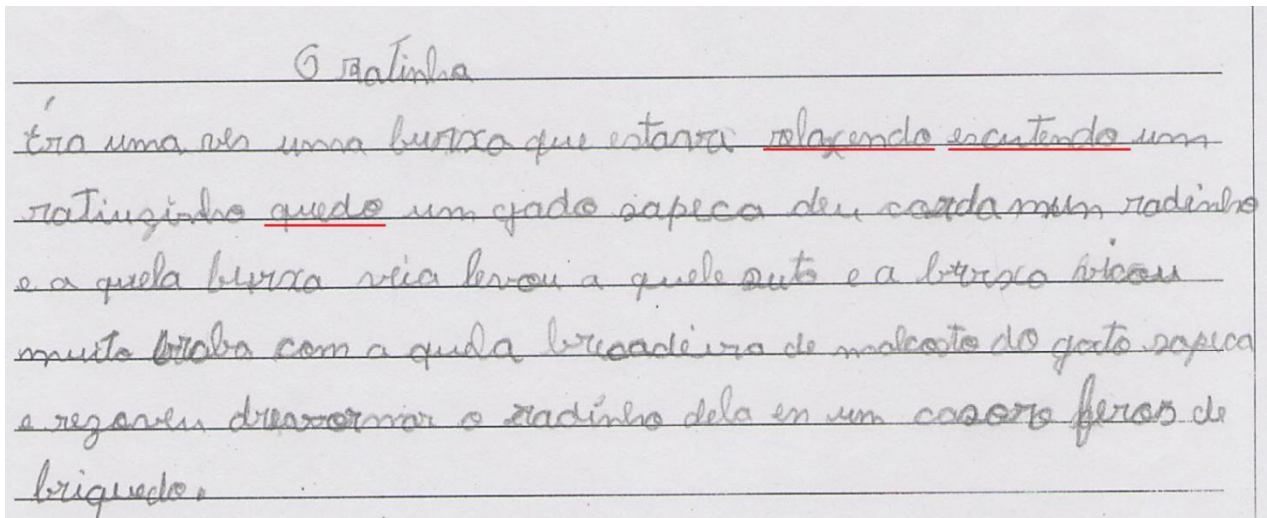 O Ratinho
Éra uma ves uma burxa que estava relaxendo escutendo um
ratinzinho quedo um gado sapeca deu corda mun radinho
e a quela burxa veia levou a quele suto e a burxo vicou
muito braba com a quela bricadeiro de malcosto do gato sapeca
e rezoveu dresvormar o radinho dela en um casoro feros de
briquedo.